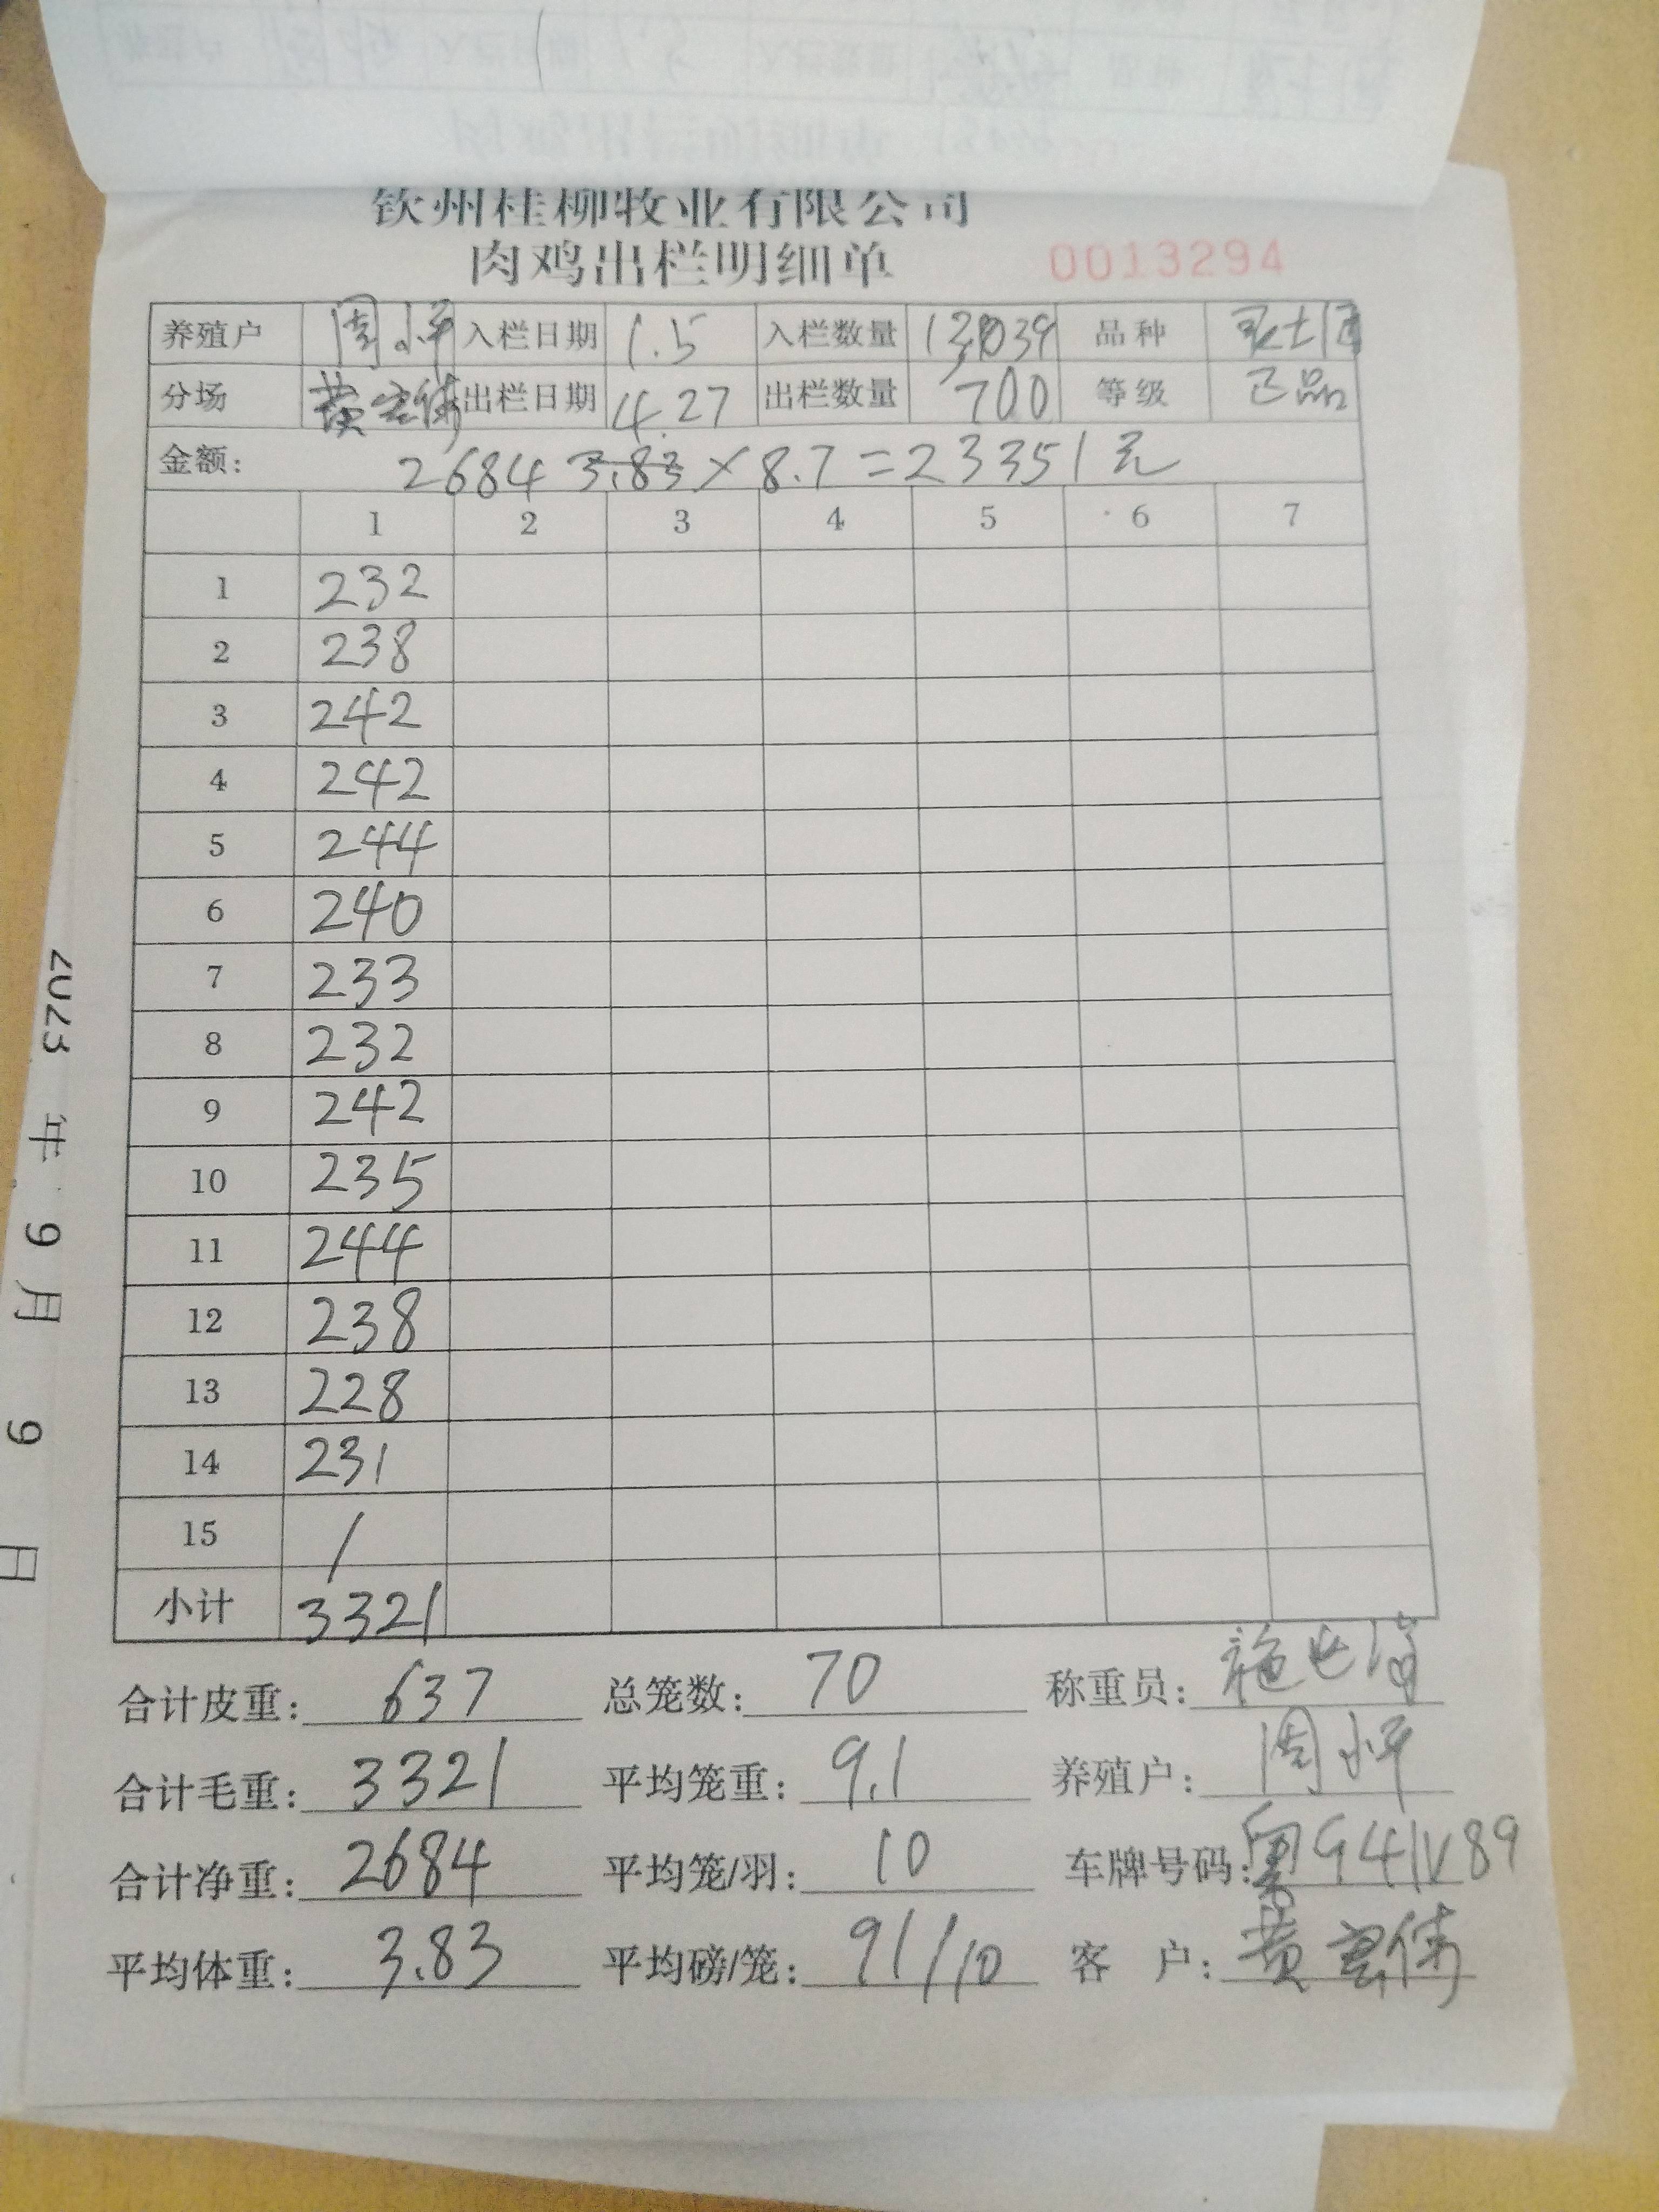 钦州桂柳牧业有限公司
肉鸡出栏明细单 0013294
养殖户 周小平 入栏日期 1.5 入栏数量 品种
分场 出栏日期 4.27 出栏数量 700 等级 正品
金额: 2684 3.83 × 8.7 = 23351元
1 2 3 4 5 6 7
1 232
2 238
3 242
4 242
5 244
6 240
7 233
8 232
9 242
10 235
11 244
12 238
13 228
14 231
15 /
小计 3321
合计皮重: 637 总笼数: 70 称重员:
合计毛重: 3321 平均笼重: 9.1 养殖户: 周小平
合计净重: 2684 平均笼/羽: 10 车牌号码:
平均体重: 3.83 平均磅/笼: 91/10 客户:
2023年9月9日